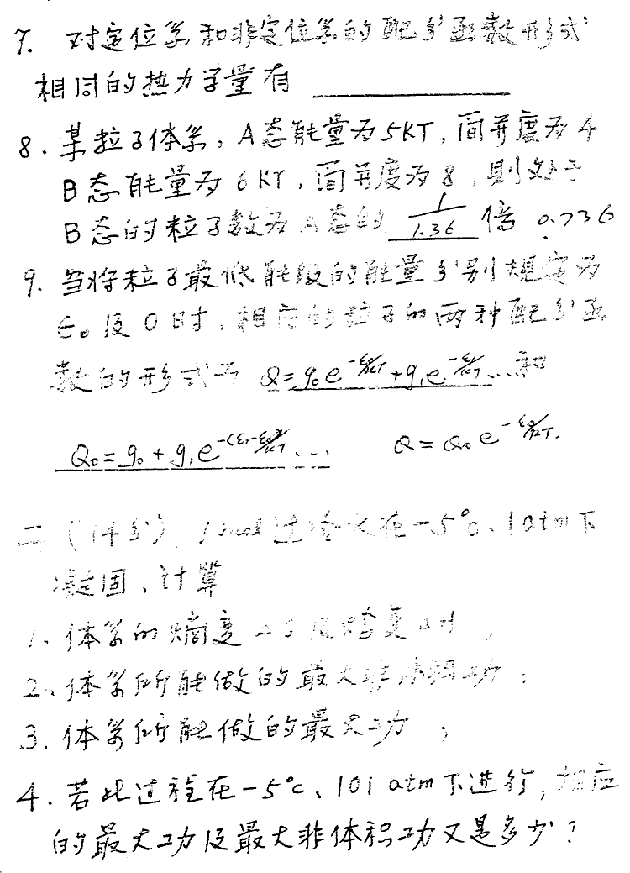 7. 对定位系和非定位系的配分函数形式
相同的热力学量有
8. 某粒子体系，A态能量为5KT，简并度为4
B态能量为6KT，简并度为8，则处于
B态的粒子数为A态的 1/1.36 倍 0.736
9. 当将粒子最低能级的能量分别规定为
ε₀及0时，相应的粒子的两种配分函
数的形式为 Q=g₀e^{-ε₀/KT}+g₁e^{-ε₁/KT}…和
Q₀=g₀+g₁e^{-(ε₁-ε₀)/KT}… Q=Q₀e^{-ε₀/KT}.
二（14分）、1mol过冷水在-5°C、1atm下
凝固，计算
1. 体系的熵变ΔS及焓变ΔH；
2. 体系所能做的最大非体积功；
3. 体系所能做的最大功；
4. 若此过程在-5°C、101 atm下进行，相应
的最大功及最大非体积功又是多少？